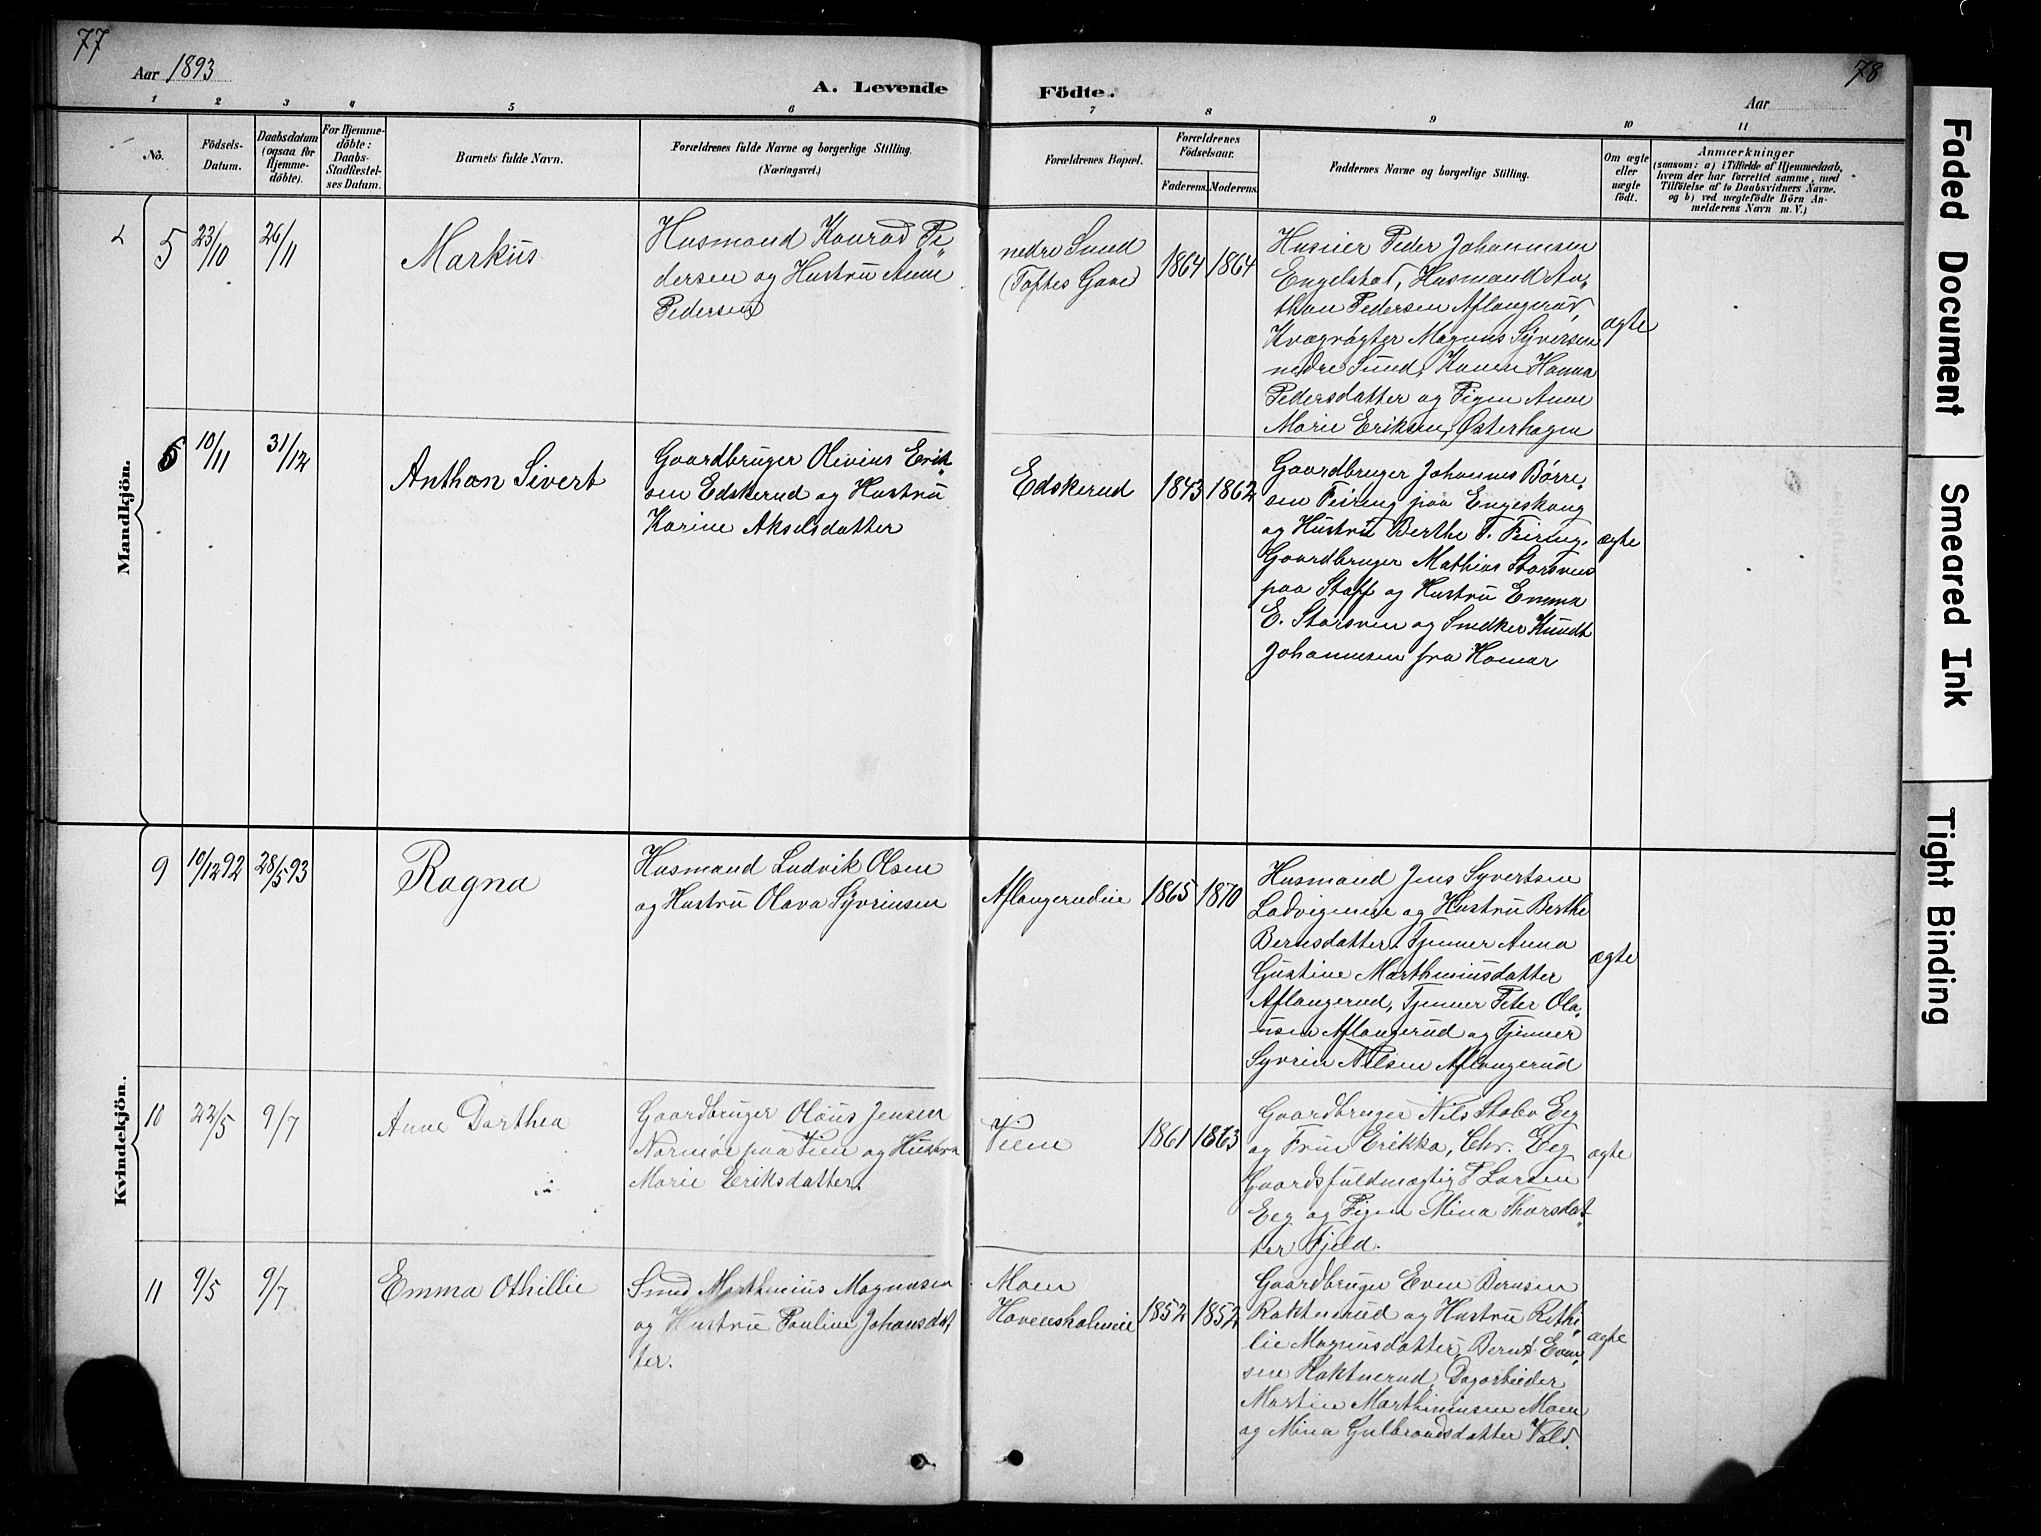 77
78
Aar 1893
A. Levende
Födte.
Aar
1 2 3 4 5 6 7 8 9 10 11
No.
Födsels-
Datum.
Daabsdatum
(ogsaa for
Hjemme-
döbte).
For Hjemme-
döbte:
Daabs-
Stadfæstel-
ses Datum.
Barnets fulde Navn.
Forældrenes fulde Navne og borgerlige Stilling.
(Næringsvei.)
Forældrenes Bopæl.
Forældrenes
Födselsaar.
Faderens. Moderens.
Faddernes Navne og borgerlige Stilling.
Om ægte
eller
uægte
födt.
Anmærkninger
(saasom: a) i Tilfælde af Hjemmedaab,
hvem der har forrettet samme, med
Tilföielse af to Daabsvidners Navne.
og b) ved uægtefödte Börn An-
melderens Navn m. V.)
Mandkjön.
5
23/10
26/11
Markus
Husmand Konrad Pe
dersen og Hustru Anne
Pedersen
nedre Sund
(Toftes Gave)
1864 1864
Huseier Peder Johannesen
Engelstad, Husmand An
thon Pedersen Aflangerud,
Kvægrøgter Magnus Syversen
nedre Sund, Konen Hanna
Pedersdatter og Pigen Anne
Marie Eriksen, Østerhagen
ægte
6
10/11
31/12
Anthon Sivert
Gaardbruger Olivius Erik
sen Edskerud og Hustru
Karine Akselsdatter
Edskerud
1843 1862
Gaardbruger Johannes Børre
sen Feiring paa Engeskaug
og Hustru Berthe T. Feiring.
Gaardbruger Mathias Storsveen
paa Staff og Hustru Emma
E. Storsveen og Snedker Knudt
Johannesen fra Hamar
ægte
Kvindekjön.
9
10/12 92
28/5 93
Ragna
Husmand Ludvik Olsen
og Hustru Olava Syvrinsen
Aflangerudeie
1865 1870
Husmand Jens Syvertsen
Ladvigeneie og Hustru Berthe
Berntsdatter. Tjener Anna
Gustine Marthiniusdatter
Aflangerud, Tjener Peter Ola
usen Aflangerud og Tjener
Syvrin Nilsen Aflangerud
ægte
10
22/5
9/7
Anne Dorthea
Gaardbruger Olaus Jensen
Normør paa Vien og Hustru
Marie Eriksdatter.
Vien
1861 1863
Gaardbruger Nils Stabo Eeg
og Frue Erikka, Chr. Eeg
Gaardsfuldmægtig P Larsen
Eeg og Pigen Mina Thorsdat
ter Fjeld.
ægte
11
9/5
9/7
Emma Othillie
Smed Marthinius Magnusen
og Hustru Pauline Johansdat
ter.
Moen
Hovensholmeie
1852 1852
Gaardbruger Even Berntsen
Raknerud og Hustru
lie Magnusdatter, Bernt Even
sen Raknerud, Dagarbeider
Martin Marthiniusen Moen
og Mina Gulbrandsdatter Vold.
ægte
Faded Document
Smeared Ink
Tight Binding